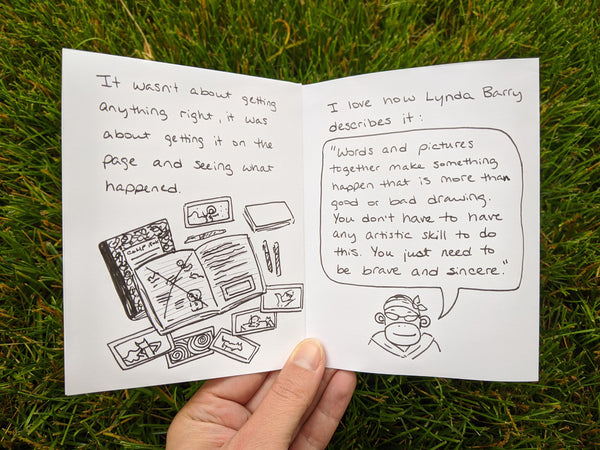 It wasn't about getting
anything right, it was
about getting it on the
page and seeing what
happened.
I love how Lynda Barry
describes it:
"Words and pictures
together make something
happen that is more than
good or bad drawing.
You don't have to have
any artistic skill to do
this. You just need to
be brave and sincere."